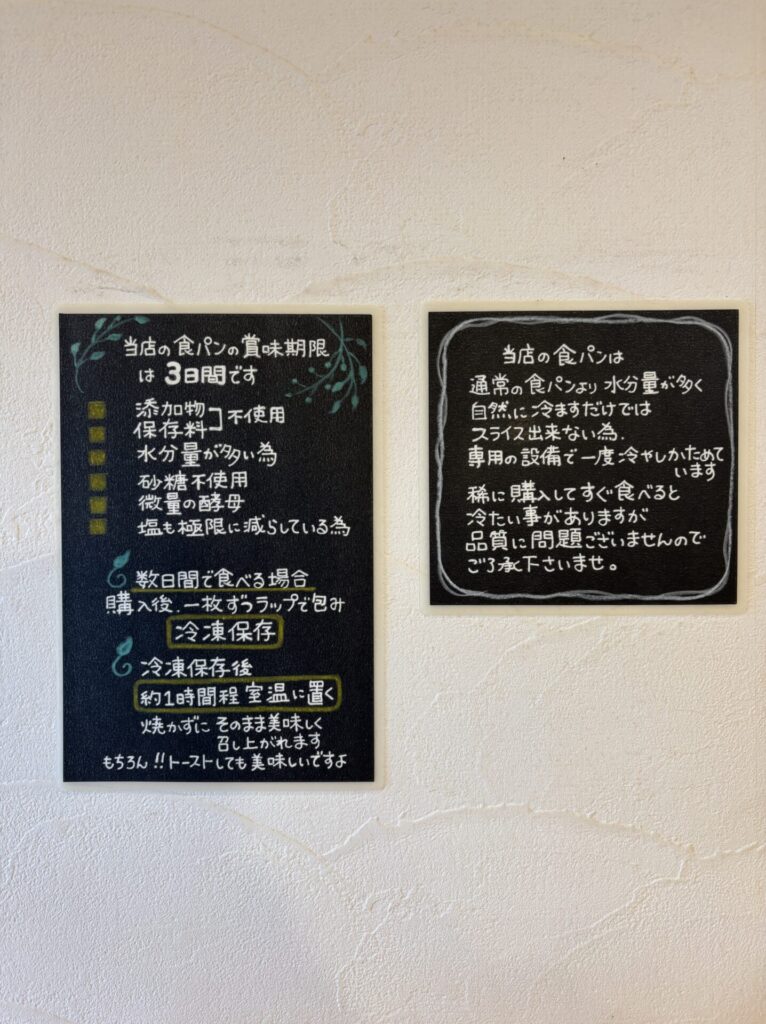 当店の食パンの賞味期限
は3日間です
添加物
保存料 不使用
水分量が多い為
砂糖不使用
微量の酵母
塩も極限に減らしている為
数日間で食べる場合
購入後.一枚ずつラップで包み
冷凍保存
冷凍保存後
約1時間程 室温に置く
焼かずに そのまま美味しく
召し上がれます
もちろん!!トーストしても美味しいですよ
当店の食パンは
通常の食パンより 水分量が多く
自然に冷ますだけでは
スライス出来ない為.
専用の設備で一度冷やしかためて
います
稀に購入してすぐ食べると
冷たい事がありますが
品質に問題ございませんので
ご了承下さいませ。